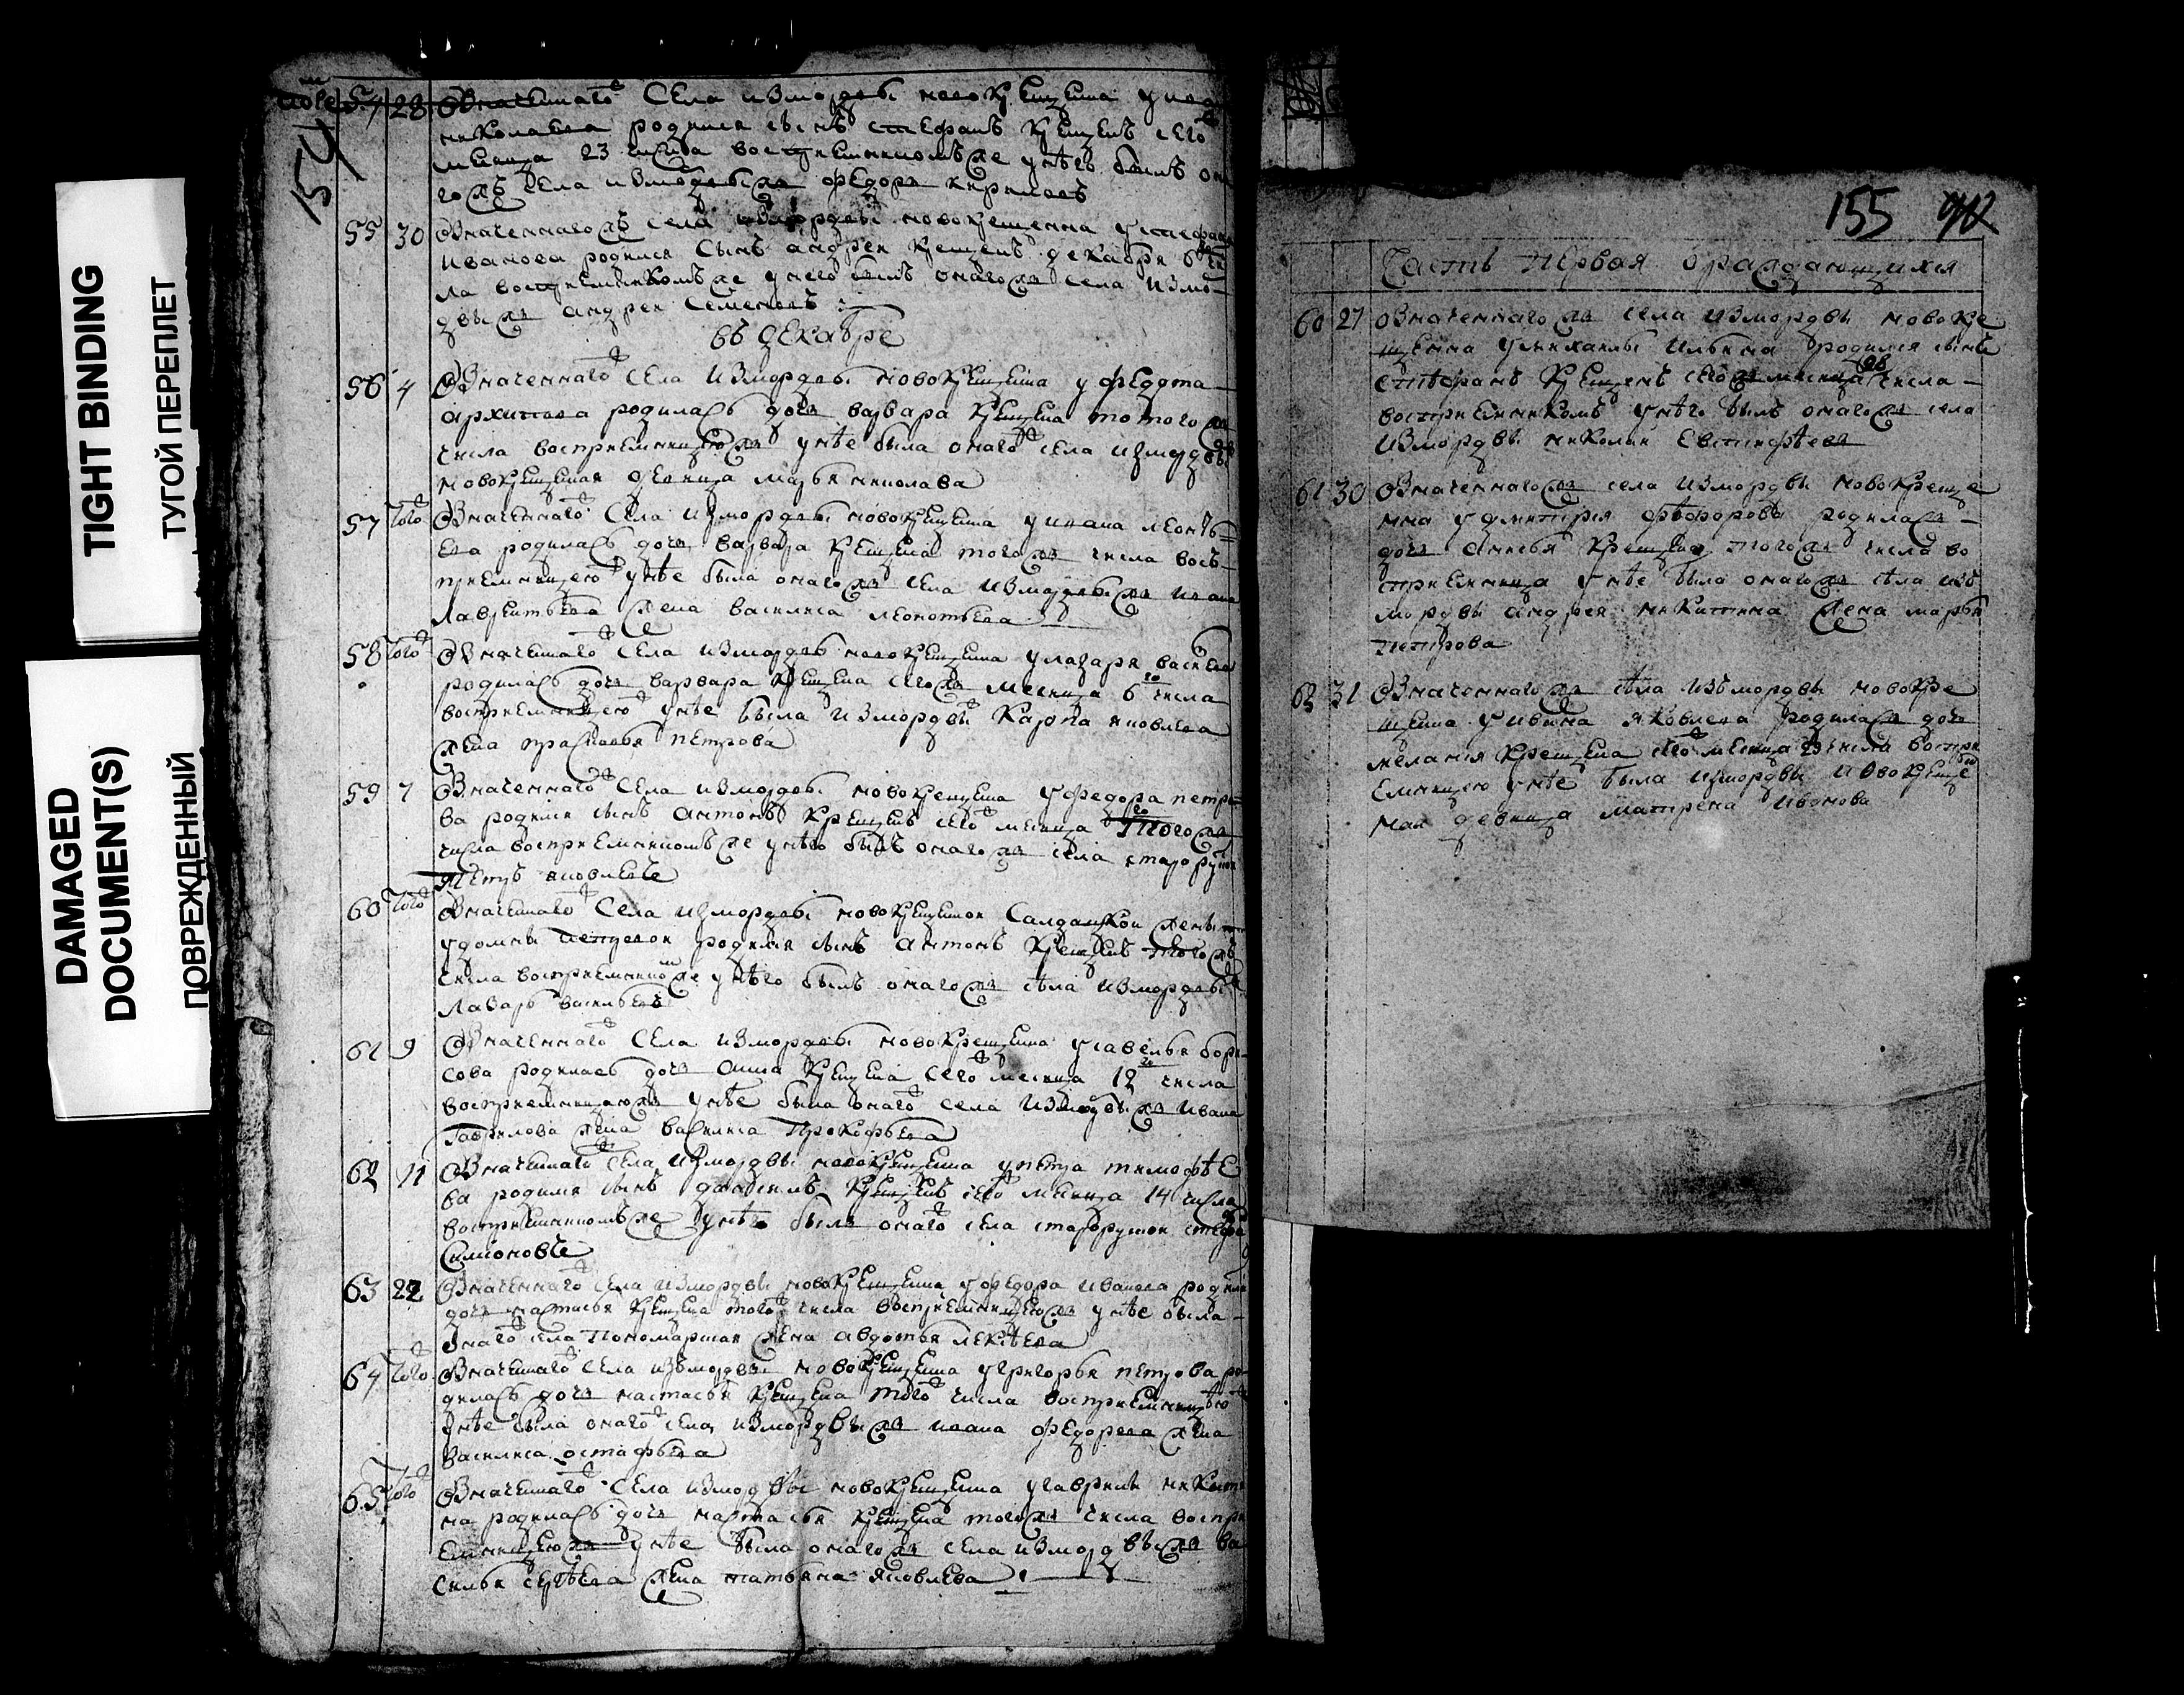 TIGHT BINDING
ТУГОЙ ПЕРЕПЛЕТ
DAMAGED
DOCUMENT(S)
ПОВРЕЖДЕННЫЙ
154
54 28 села измордвы новокрещена
николаева родился сынъ стефанъ крещенъ сего
месяца 23 числа восприемникомъ же у него былъ
гожъ села измордвыжъ федоръ
55 30 Означеннагожъ села измордвы новокрещенна у
иванова родился сынъ андреи крещенъ декабря 6
ла восприемникомъ же у него былъ онагожъ села измо
двыжъ андреи семеновъ
въ декабре
56 4 Означеннаго села измордвы новокрещена у федота
архипова родилась дочь варвара крещена того
числа восприемницеюжъ у нѣе была онаго села измордвы
новокрещеная девица марья николава
57 того Означеннаго села измордвы новокрещена у ивана леонтъ
ева родилась дочь варвара крещена тогожъ числа восъ
приемницею у нѣе была онагожъ села измордвыжъ ивана
лаврентьева жена василиса леонотьева
58 того Означеннаго села измордвы новокрещена у лазаря василева
родилась дочь варвара крещена сегожъ месяца 6 го числа
восприемницею у нѣе была измордвы карпа яковлева
жена прасковья петрова
59 7 Означеннаго села измордвы новокрещена у федора петро
ва родился сынъ антонъ крещенъ сего месяца тогожъ
числа восприемникомъ же у нѣго былъ онагожъ села
петръ яковлевъ
60 того Означеннаго села измордвы новокрещеной салдацкой жены
у домны родился сынъ антонъ крещенъ тогожъ
числа восприемникомъ же у нѣго былъ онагожъ сѣла измордвы
лазарь василевъ
61 9 Означеннаго села измордвы новокрещена у савелья бори
сова родилась дочь анна крещена сего месяца 12 го числа
восприемницеюжъ у нѣе была онаго села измордвыжъ ивана
гаврилова жена василиса прокофьева
62 11 Означеннаго села измордвы новокрещена у петра тимофѣе
ва родился сынъ даниилъ крещенъ сего месяца 14 числа
восприемникомъ же у нѣго былъ онаго села
симионовъ
63 22 Означеннаго села измордвы новокрещена у федора иванова родилась
дочь настасья крещена того числа восприемницеюжъ у нѣе была
онаго села пономаршая жена авдотья
64 того Означеннаго села измордвы новокрещена у григорья петрова ро
дилась дочь настасья крещена того числа восприемницею
у нѣе была онаго села измордвыжъ ивана федорова жена
василиса остафьева
65 того Означеннаго села измордвы новокрещена у гаврилы никити
на родилась дочь настасья крещена тогожъ числа воспри
емницеюжъ у нѣе была онагожъ села измордвыжъ ва
силья сергѣева жена татьяна яковлева
155
Часть первая ораждающихся
60 27 Означеннагожъ села измордвы новокре
щенна у михаилы ильина родился сынъ
стефанъ крещенъ сегожъ месяца 28 числа
восприемникомъ у нѣго былъ онагожъ села
измордвы николаи евстифѣевъ
61 30 Означеннагожъ села измордвы новокреще
нна у дмитрия фѣодорова родилась
дочь анисья крещена тогожъ числа во
сприемница у нѣе была онагожъ сѣла изъ
мордвы андрея никитина жена марья
петрова
62 31 Означеннагожъ сѣла изъмордвы новокре
щенна у ивана яковлева родилась дочь
мелания крещена сего месяца числа воспри
емницею у нѣе была измордвы новокреще
ная девица матрена иванова